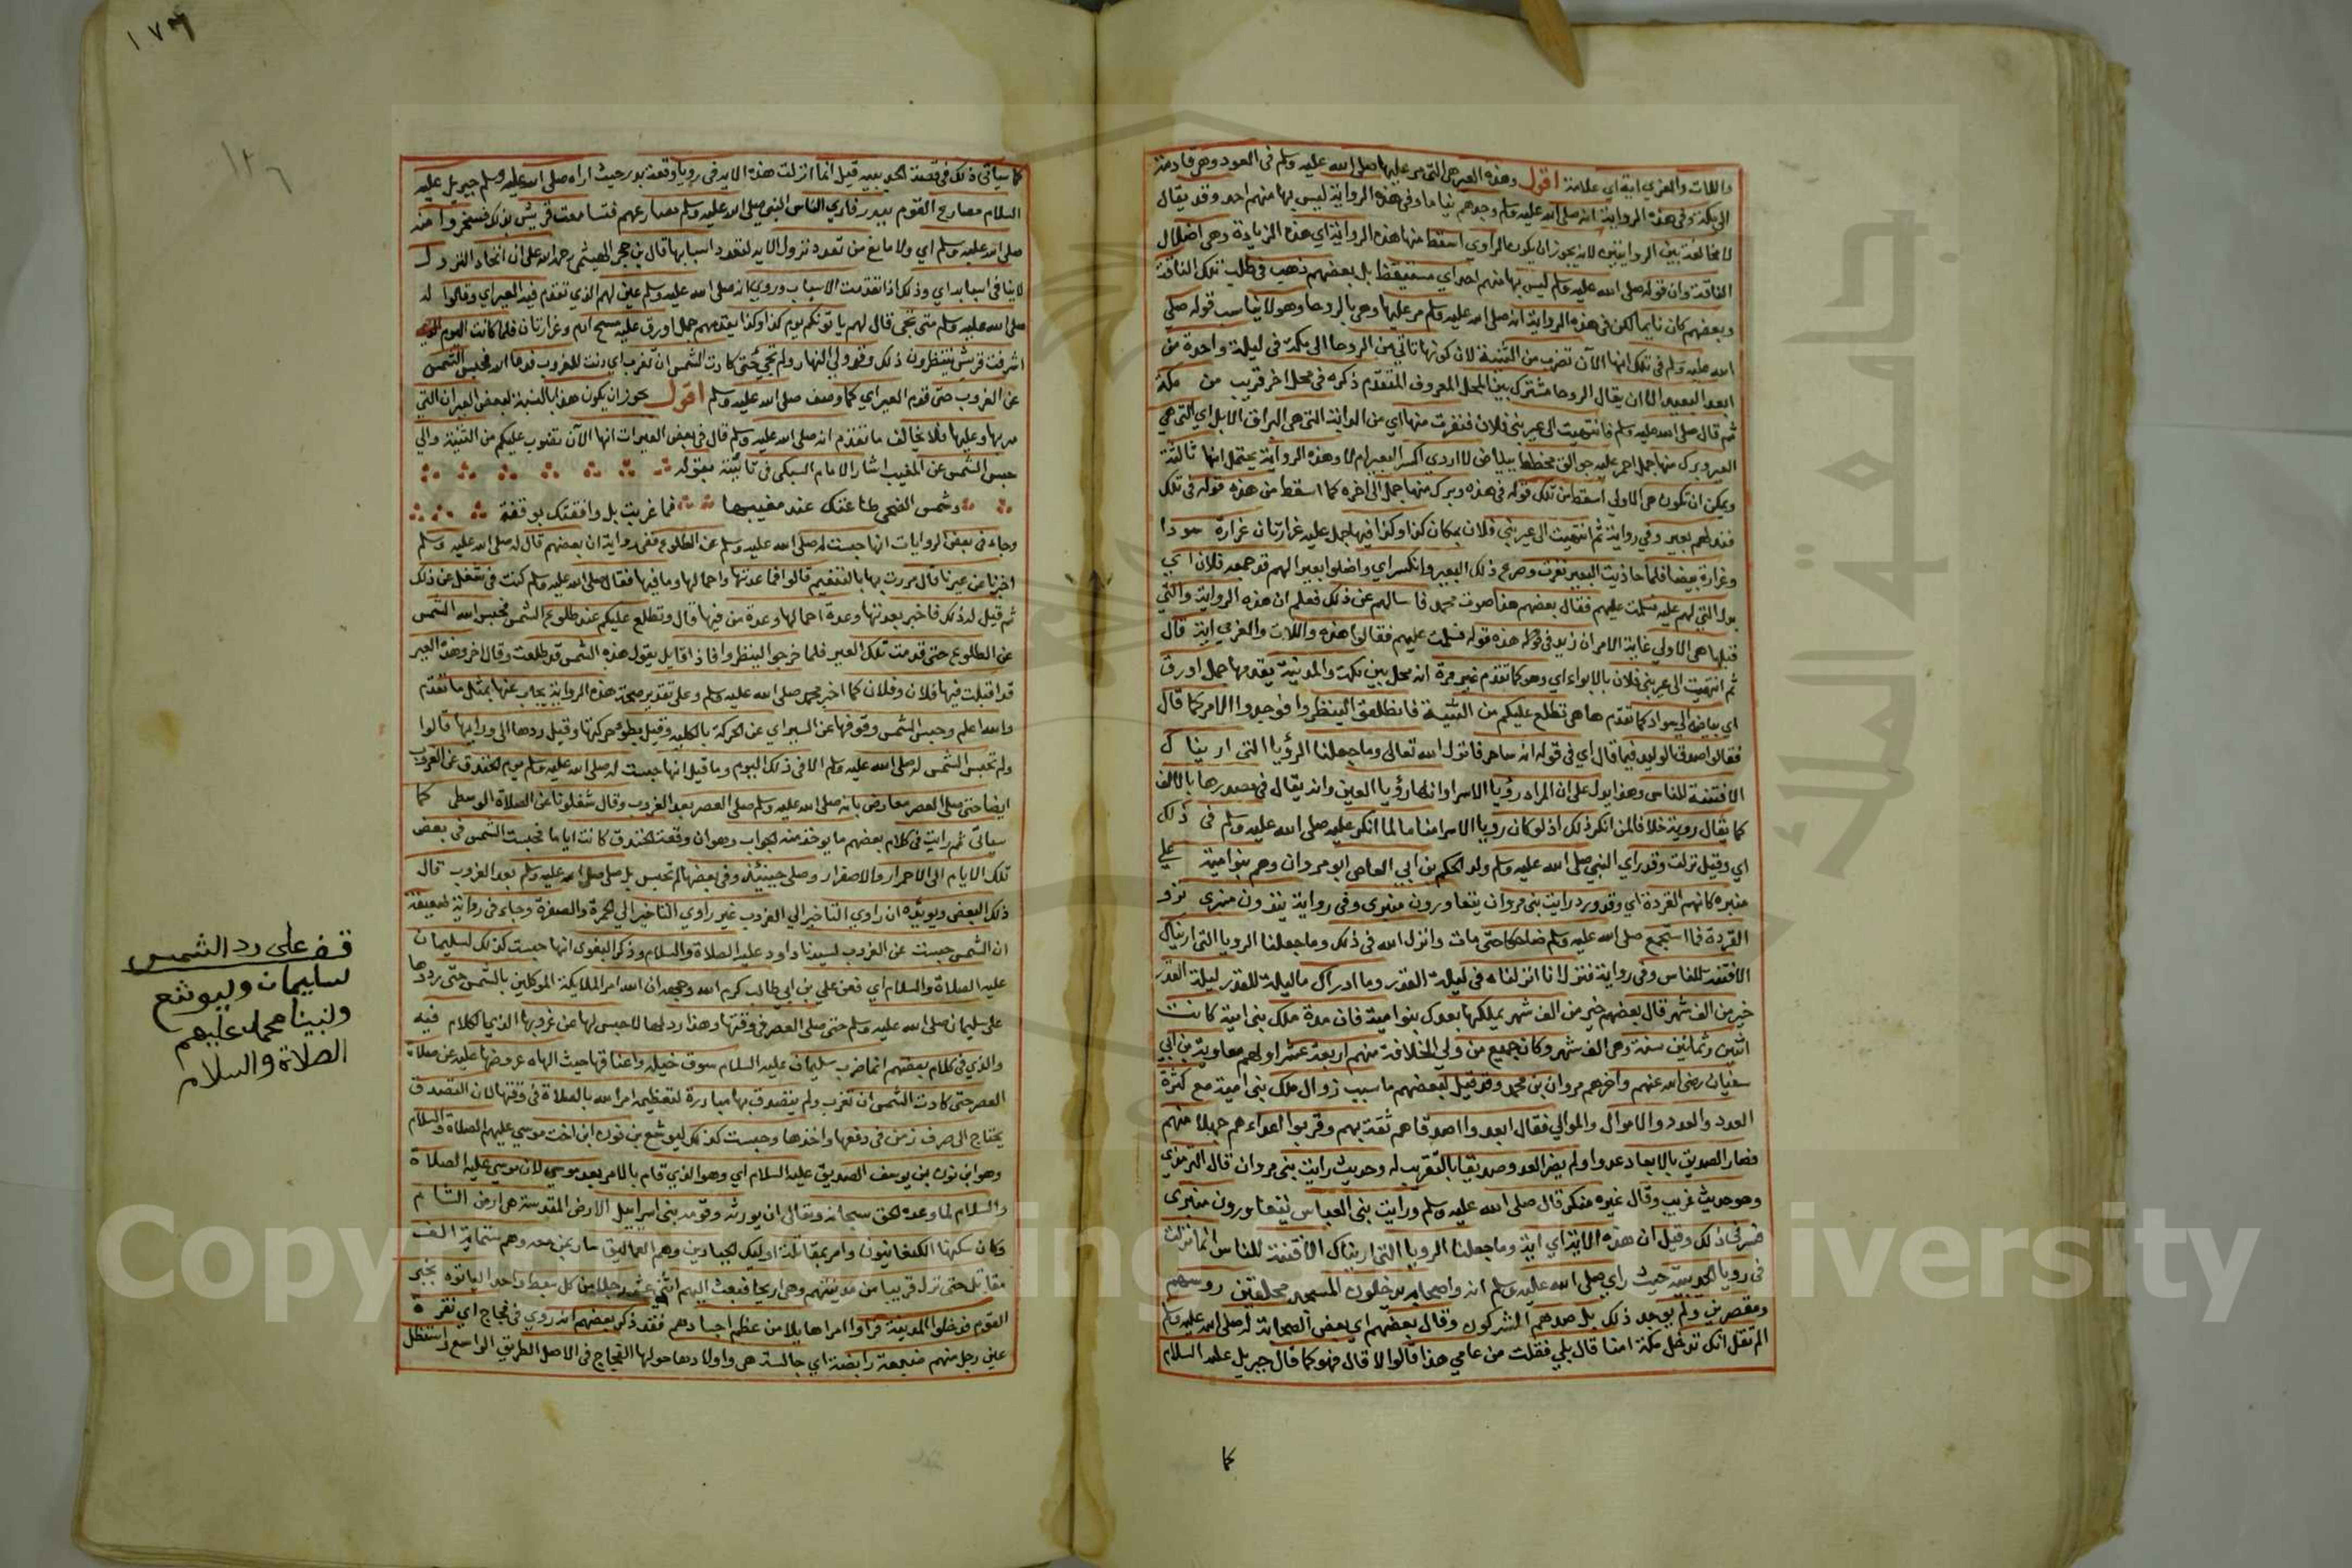 واللات والعزي اية اي علامة اقول وهذه العير هي التي مر عليها صلى الله عليه وسلم في العود وهي قادمة
الى مكة وفي هذه الرواية انه صلى الله عليه وسلم وجدهم نياما وفي هذه الرواية ليس بها منهم احد وقد يقال
لا مخالفة بين الروايتين لانه يجوز ان يكون الراوي اسقط منها هذه الرواية اي هذه الزيادة وهي اضلال
الناقة وان قوله صلى الله عليه وسلم ليس بها منهم احد اي مستيقظا بل بعضهم ذهب في طلب تلك الناقة
وبعضهم كان نايما لكن في هذه الرواية انه صلى الله عليه وسلم مر عليها وهي بالروحا وهو لا يناسب قوله صلى
الله عليه وسلم في تلك انها الآن تصوب من الثنية لان كونها تاتي من الروحا الى مكة في ليلة واحدة من
ابعد البعيد الا ان يقال الروحا مشترك بين المحل المعروف المتقدم ذكره في محل اخر قريب من مكة
ثم قال صلى الله عليه وسلم فانتهيت الى عير بني فلان فنفرت منها اي من الدابة التي هي البراق الابل اي التي هي
العير وبرك منها جمل احمر عليه جوالق مخطط ببياض لا ادري اكسر البعير ام لا وهذه الرواية يحتمل انها ثالثة
ويمكن ان تكون هي الاولي اسقط من تلك قوله في هذه وبرك منها جمل الى اخره كما اسقط من هذه قوله في تلك
فند لهم بعير وفي رواية ثم انتهيت الى عير بني فلان بمكان كذا وكذا فيها جمل عليه غرارتان غرارة سودا
وغرارة بيضا فلما حاذيت البعير نفرت وصرع ذلك البعير وانكسر اي واضلوا بعيرا لهم قد جمعه فلان اي
بدلالتي لهم عليه فسلمت عليهم فقال بعضهم هذا صوت محمد فاسالهم عن ذلك فعلم ان هذه الرواية والتي
قبلها هي الاولي غاية الامر ان زيد في هذه قوله فسلمت عليهم فقالوا هذه واللات والعزي اية قال
ثم انتهيت الى عير بني فلان بالابواء اي وهو كما تقدم غير مرة انه محل بين مكة والمدينة يقدمها جمل اورق
اي بياضه الى سواد كما تقدم ها هي تطلع عليكم من الثنية فانطلقوا لينظروا فوجدوا الامر كما قال
فقالوا صدق الوليد فيما قال اي في قوله انه ساحر فانزل الله تعالى وما جعلنا الرؤيا التي اريناك
الا فتنة للناس وهذا يدل على ان المراد رؤيا الاسرا وانها رؤيا العين وانه يقال في مصدرها بالالف
كما يقال روية خلافا لمن انكر ذلك اذ لو كان رويا الاسرا مناما لما انكر عليه صلى الله عليه وسلم في ذلك
اي وقيل نزلت وقد راي النبي صلى الله عليه وسلم ولد الحكم بن ابي العاصي ابو مروان وهم بنو امية علي
منبره كانهم القردة اي وقد ورد رايت بني مروان يتعاورون منبري وفي رواية ينزون منبري نزو
القردة فما استجمع صلى الله عليه وسلم ضاحكا حتى مات وانزل الله في ذلك وما جعلنا الرويا التي اريناك
الا فتنة للناس وفي رواية فنزل انا انزلناه في ليلة القدر وما ادراك ما ليلة القدر ليلة القدر
خير من الف شهر قال بعضهم خير من الف شهر يملكها بعدك بنو امية فان مدة ملك بني امية كانت
اثنين وثمانين سنة وهي الف شهر وكان جميع من ولي الخلافة منهم اربعة عشر اولهم معاوية بن ابي
سفيان رضي الله عنهم واخرهم مروان بن محمد وقد قيل لبعضهم ما سبب زوال ملك بني امية مع كثرة
العدد والعدد والاموال والموالي فقال ابعدوا اصدقاهم ثقة بهم وقربوا اعداءهم جهلا منهم
فصار الصديق بالابعاد عدوا ولم يصر العدو صديقا بالتقريب له وحديث رايت بني مروان قال الترمذي
وهو حديث غريب وقال غيره منكر قال صلى الله عليه وسلم ورايت بني العباس يتعاورون منبري
فسرني ذلك وقيل ان هذه الاية اي اية وما جعلنا الرويا التي اريناك الا فتنة للناس انما نزلت
في رويا الحديبية حيث راي صلى الله عليه وسلم انه واصحابه يدخلون المسجد محلقين روسهم
ومقصرين ولم يوجد ذلك بل صدهم المشركون وقال بعضهم اي بعض الصحابة له صلى الله عليه وسلم
الم تقل انك تدخل مكة امنا قال بلي فقلت من عامي هذا قالوا لا قال فهو كما قال جبريل عليه السلام
كما
١٧٦
١٢٦
كما سياتي ذلك في قصة الحديبية قيل انما انزلت هذه الاية في رويا وقعة بدر حيث اراه صلى الله عليه وسلم جبريل عليه
السلام مصارع القوم ببدر فاري الناس النبي صلى الله عليه وسلم مصارعهم فتسامعت قريش بذلك فسخروا منه
صلى الله عليه وسلم اي ولا مانع من تعدد نزول الاية لتعدد اسبابها قال بن حجر الهيثمي رحمه الله على ان اتحاد النزول
لا ينافي اسبابه اي وذلك اذا تقدمت الاسباب وروي انه صلى الله عليه وسلم عين لهم الذي تقدم فيه العير اي وقالوا له
صلى الله عليه وسلم متى تجي قال لهم ياتونكم يوم كذا وكذا يقدمهم جمل اورق عليه مسح ادم وغرارتان فلما كانت اليوم
اشرفت قريش ينتظرون ذلك وقد ولي النهار ولم تجئ حتى كادت الشمس ان تغرب اي دنت للغروب فدعا الله فحبس الشمس
عن الغروب حتى قدم العير اي كما وصف صلى الله عليه وسلم اقول يجوز ان يكون هذا بالنسبة لبعض العيران التي
مر بها وعليها فلا يخالف ما تقدم انه صلى الله عليه وسلم قال في بعض العيرات انها الآن تصوب عليكم من الثنية والي
حبس الشمس عن المغيب اشار الامام السبكي في تائيته بقوله
وشمس الضحى طاعتك عند مغيبها فما غربت بل وافقتك بوقفة
وجاء في بعض الروايات انها حبست له صلى الله عليه وسلم عن الطلوع ففي رواية ان بعضهم قال له صلى الله عليه وسلم
اخبرنا عن عيرنا قال مررت بها بالتنعيم قالوا فما عدتها واحمالها وما فيها فقال صلى الله عليه وسلم كنت في شغل عن ذلك
ثم قيل له ذلك فاخبر بعدتها وعدة احمالها وعدة من فيها قال وتطلع عليكم عند طلوع الشمس فحبس الله الشمس
عن الطلوع حتى قدمت تلك العير فلما خرجوا لينظروا فاذا قايل يقول هذه الشمس قد طلعت وقال اخر وهذه العير
قد اقبلت فيها فلان وفلان كما اخبر محمد صلى الله عليه وسلم وعلى تقدير صحة هذه الرواية يجاب عنها بمثل ما تقدم
والله اعلم وحبس الشمس وقوفها عن السير اي عن الحركة بالكلية وقيل بطؤ حركتها وقيل ردها الى ورايها قالوا
ولم تحبس الشمس له صلى الله عليه وسلم الا في ذلك اليوم وما قيل انها حبست له صلى الله عليه وسلم يوم الخندق عن الغروب
ايضا حتى صلى العصر معارض بانه صلى الله عليه وسلم صلى العصر بعد الغروب وقال شغلونا عن الصلاة الوسطى كما
سياتي ثم رايت في كلام بعضهم ما يوخذ منه الجواب وهو ان وقعة الخندق كانت اياما فحبست الشمس في بعض
تلك الايام الى الاحمرار والاصفرار وصلى حينئذ وفي بعضها لم تحبس بل صلى صلى الله عليه وسلم بعد الغروب قال
ذلك البعض ويويده ان راوي التاخير الي الغروب غير راوي التاخير الي الحمرة والصفرة وجاء في رواية ضعيفة
ان الشمس حبست عن الغروب لسيدنا داود عليه الصلاة والسلام وذكر البغوي انها حبست كذلك لسليمان
عليه الصلاة والسلام اي فعن علي بن ابي طالب كرم الله وجهه ان الله امر الملايكة الموكلين بالشمس حتى ردوها
على سليمان صلى الله عليه وسلم حتى صلى العصر في وقتها وهذا رد لها لا حبس لها عن غروبها الذي الكلام فيه
والذي في كلام بعضهم انما ضرب سليمان عليه السلام سوق خيله واعناقها حيث الهاه عروضها عليه عن صلاة
العصر حتى كادت الشمس ان تغرب ولم يتصدق بها مبادرة لتعظيم امر الله بالصلاة في وقتها لان التصدق
يحتاج الى صرف زمن في دفعها واخذها وحبست كذلك ليوشع بن نون ابن اخت موسي عليهم الصلاة والسلام
وهو ابن نون بن يوسف الصديق عليه السلام اي وهو الذي قام بالامر بعد موسي لان موسي عليه الصلاة
والسلام لما وعده الحق سبحانه وتعالى ان يورثه وقومه بني اسرابيل الارض المقدسة هي ارض الشام
وكان سكنها الكنعانيون وامر بمقاتلة اوليك الجبارين وهم العماليق سار بمن معه وهم ستماية الف
مقاتل حتى نزل قريبا من مدينتهم وهي اريحا فبعث اليهم اثني عشر رجلا من كل سبط واحد لياتوه بخبر
القوم فدخلوا المدينة فراوا امرا هايلا من عظم اجسادهم فقد ذكر بعضهم انه روي في فجاج اي نقرة
عين رجل منهم ضبعة رابضة اي جالسة هي واولادها حولها الفجاج في الاصل الطريق الواسع استظل
قف على رد الشمس
لسليمان وليوشع
ولنبينا محمد عليهم
الصلاة والسلام
Copy University